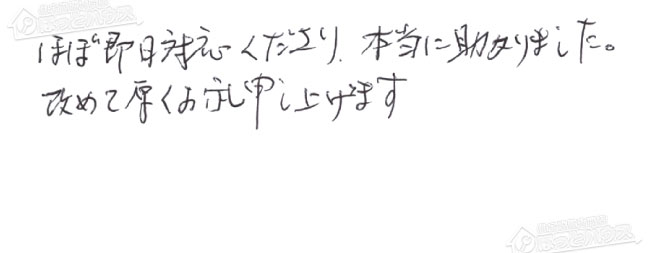 ほぼ即日対応くださり、本当に助かりました。
改めて厚くお礼申し上げます